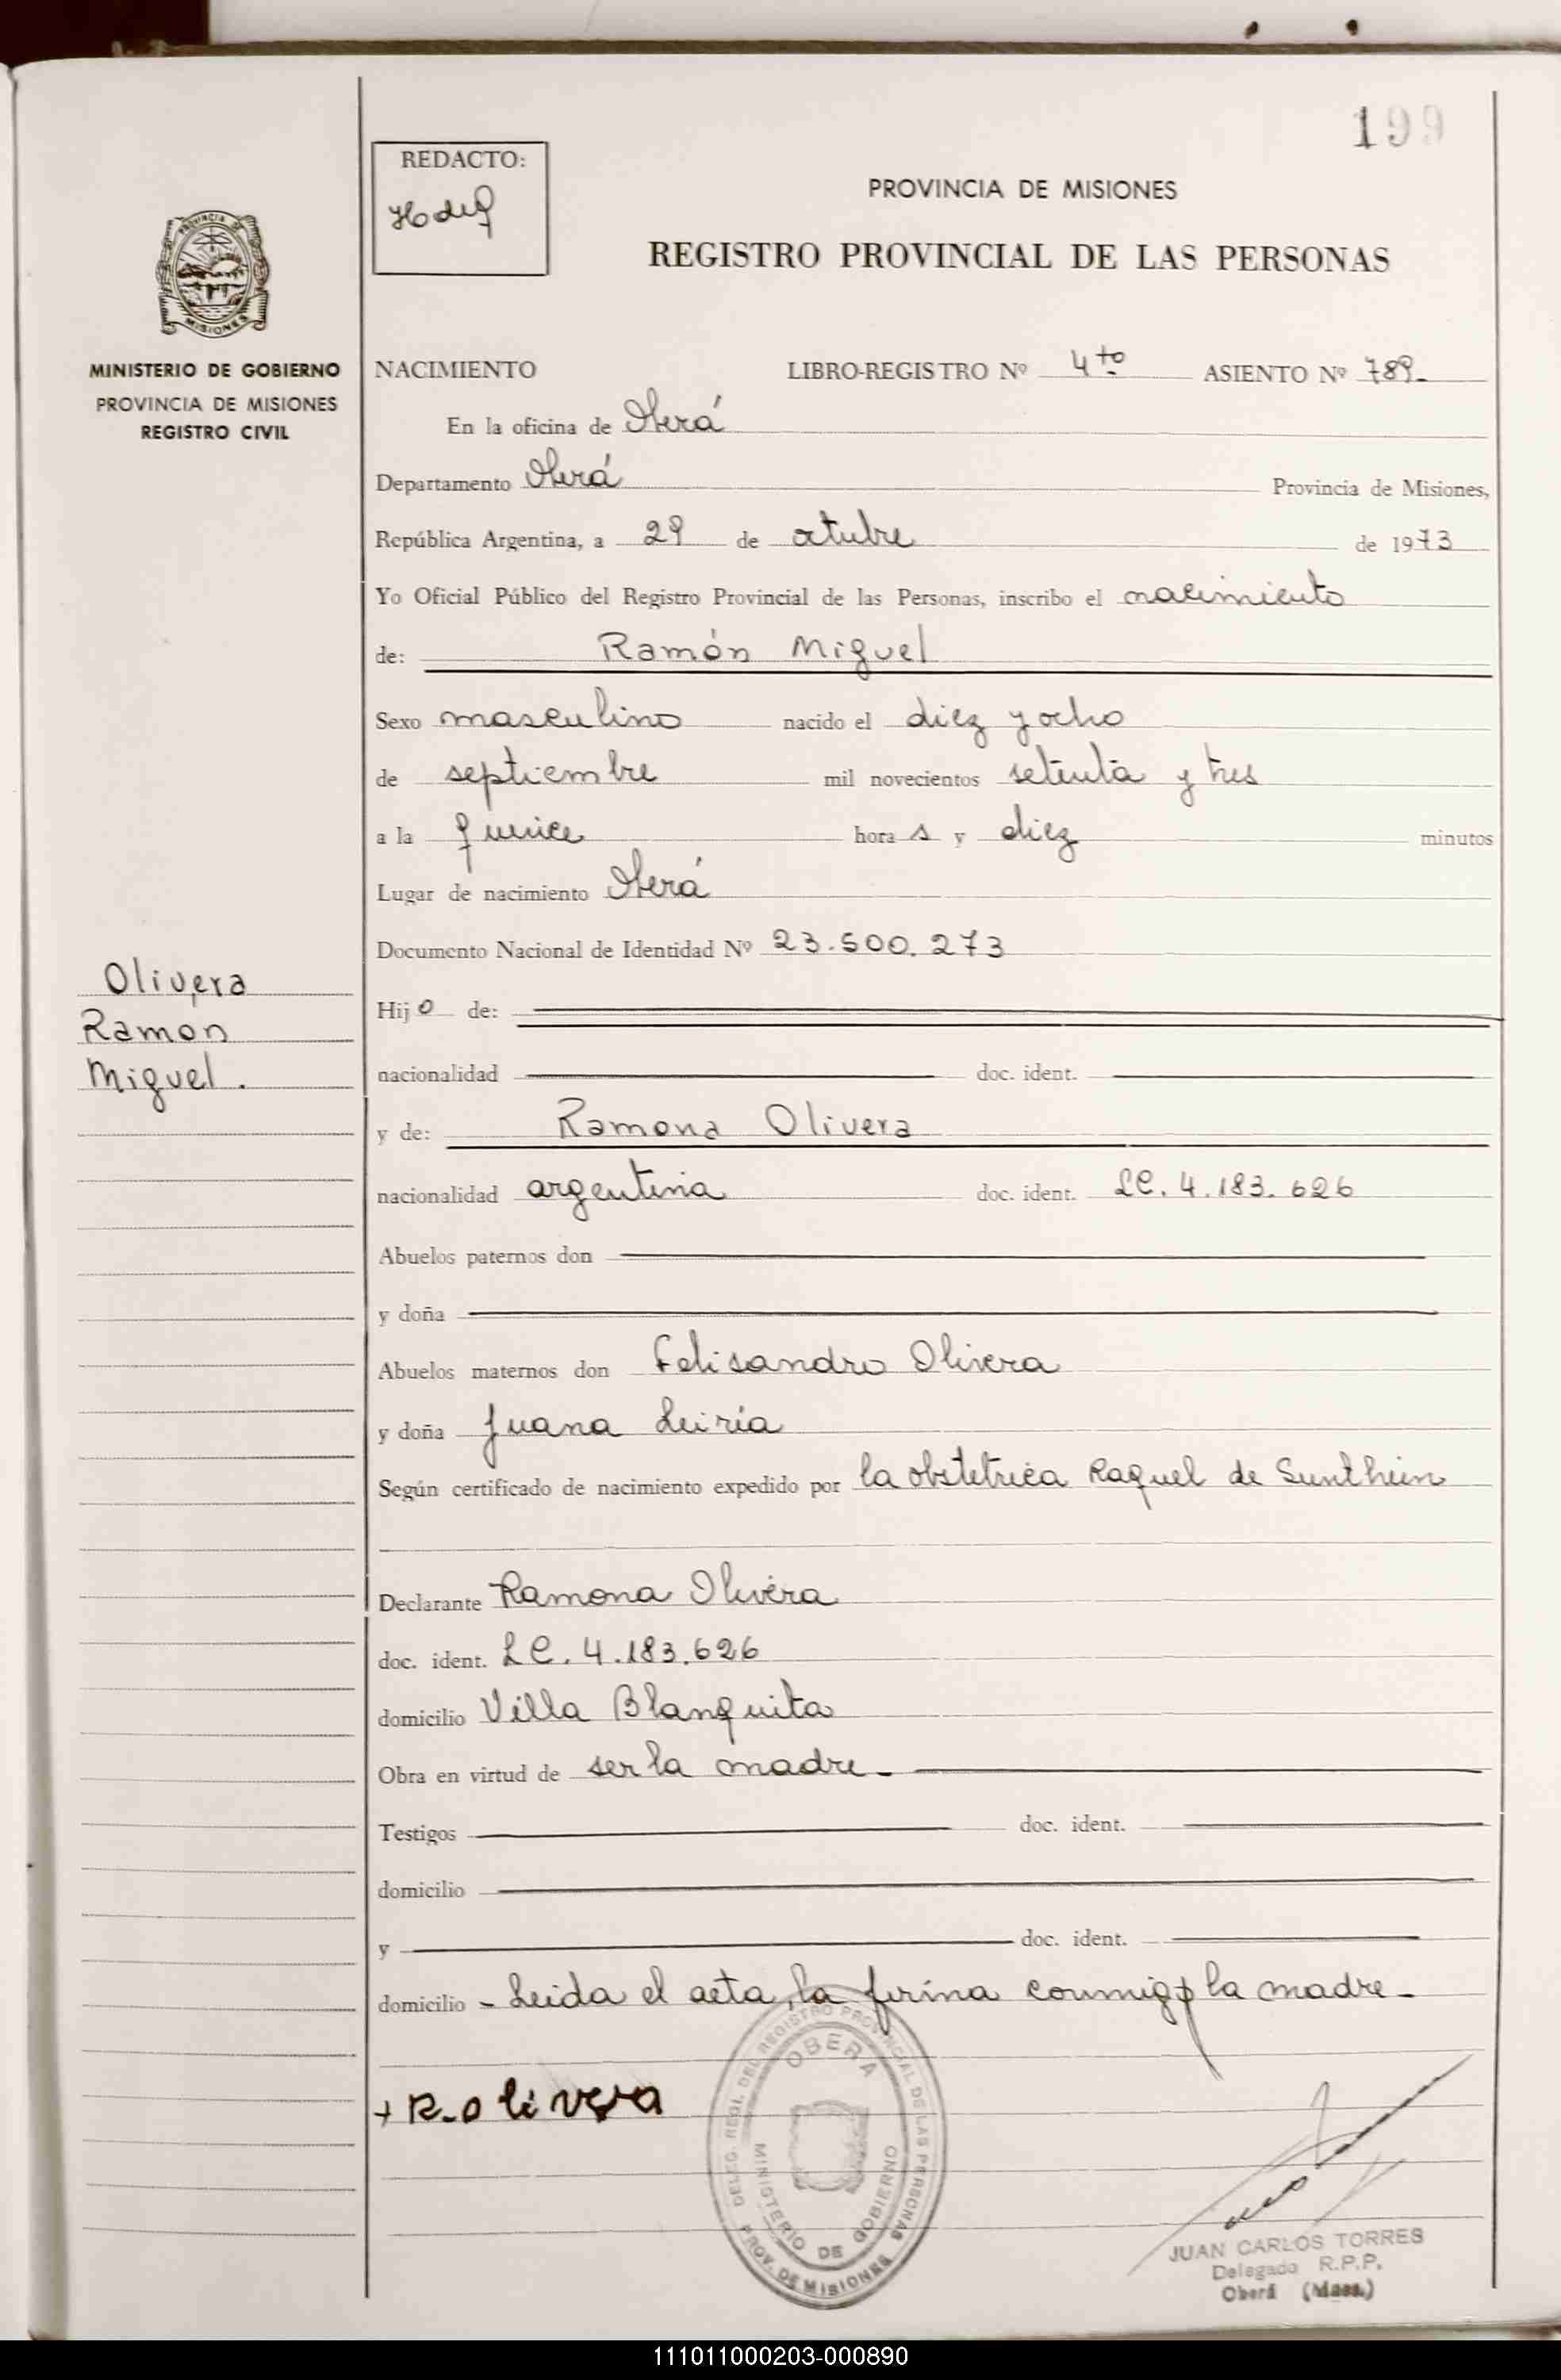 199
REDACTO:
PROVINCIA DE MISIONES
REGISTRO PROVINCIAL DE LAS PERSONAS
PROVINCIA DE
MISIONES
MINISTERIO DE GOBIERNO
PROVINCIA DE MISIONES
REGISTRO CIVIL
NACIMIENTO LIBRO-REGISTRO Nº 4to ASIENTO Nº 789-
En la oficina de Oberá
Departamento Oberá Provincia de Misiones,
República Argentina, a 29 de octubre de 1973
Yo Oficial Público del Registro Provincial de las Personas, inscribo el nacimiento
de: Ramón Miguel
Sexo masculino nacido el diez y ocho
de septiembre mil novecientos setenta y tres
a la quince hora s y diez minutos
Lugar de nacimiento Oberá
Documento Nacional de Identidad Nº 23.500.273
Olivera
Ramon
Miguel.
Hij o de:
nacionalidad doc. ident.
y de: Ramona Olivera
nacionalidad argentina doc. ident. LC. 4.183.626
Abuelos paternos don
y doña
Abuelos maternos don Felisandro Olivera
y doña Juana Leiria
Según certificado de nacimiento expedido por la obstetrica Raquel de
Declarante Ramona Olivera
doc. ident. LC. 4.183.626
domicilio Villa Blanquita
Obra en virtud de ser la madre-
Testigos doc. ident.
domicilio
y doc. ident.
domicilio - Leida el acta, la firma conmigo la madre-
+ R-olivera
DELEG. REGL. DEL REGISTRO PROVINCIAL DE LAS PERSONAS
OBERA
MINISTERIO DE GOBIERNO
PROV. DE MISIONES
JUAN CARLOS TORRES
Delegado R.P.P.
Oberá (Mnes.)
111011000203-000890